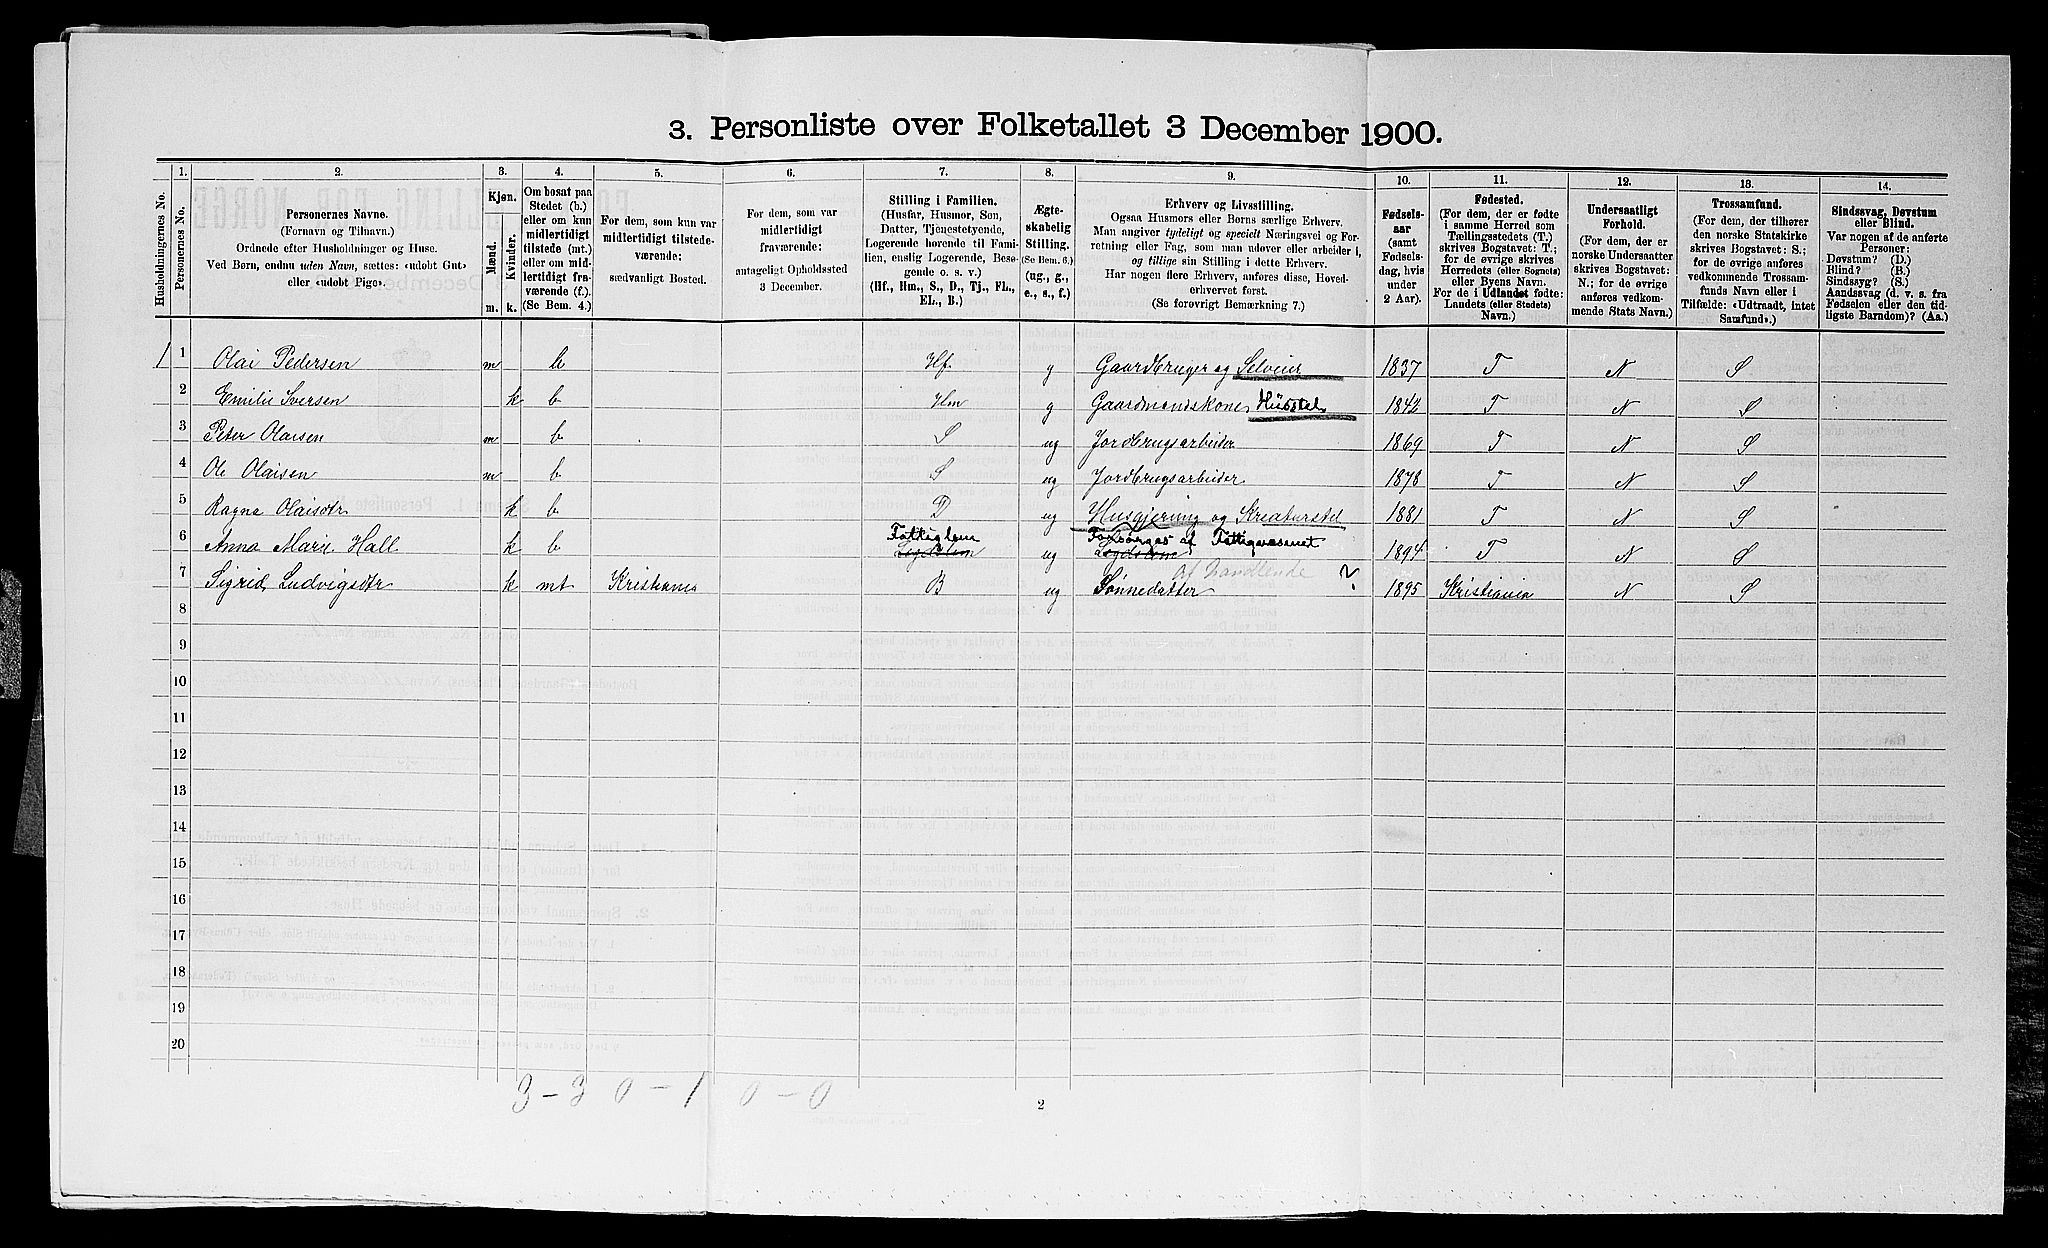 3. Personliste over Folketallet 3 December 1900.
Husholdningernes No.
1.
Personernes No.
2.
Personernes Navne.
(Fornavn og Tilnavn.)
Ordnede efter Husholdninger og Huse.
Ved Børn, endnu uden Navn, sættes: «udøbt Gut»
eller «udøbt Pige».
3.
Kjøn.
Mænd.
Kvinder.
m.
k.
4.
Om bosat paa
Stedet (b.)
eller om kun
midlertidigt
tilstede (mt.)
eller om mid-
lertidigt fra-
værende (f.).
(Se Bem. 4.)
5.
For dem, som kun var
midlertidigt tilstede-
værende:
sædvanligt Bosted.
6.
For dem, som var
midlertidigt
fraværende:
antageligt Opholdssted
3 December.
7.
Stilling i Familien.
(Husfar, Husmor, Søn,
Datter, Tjenestetyende,
Logerende hørende til Fami-
lien, enslig Logerende, Besø-
gende o. s. v.)
(Hf., Hm., S., D., Tj., FL.,
EL., B.)
8.
Ægte-
skabelig
Stilling.
(Se Bem. 6.)
(ug., g.,
e., s., f.)
9.
Erhverv og Livsstilling.
Ogsaa Husmors eller Børns særlige Erhverv.
Man angiver tydeligt og specielt Næringsvei og For-
retning eller Fag, som man udøver eller arbeider i,
og tillige sin Stilling i dette Erhverv.
Har nogen flere Erhverv, anføres disse, Hoved-
erhvervet først.
(Se forøvrigt Bemærkning 7.)
10.
Fødsels-
aar
(samt
Fødsels-
dag, hvis
under
2 Aar).
11.
Fødested.
(For dem, der er fødte
i samme Herred som
Tællingsstedets (T.)
skrives Bogstavet: T.;
for de øvrige skrives
Herredets (eller Sognets)
eller Byens Navn.
For de i Udlandet fødte:
Landets (eller Stedets)
Navn.)
12.
Undersaatligt
Forhold.
(For dem, der er
norske Undersaatter
skrives Bogstavet:
N.; for de øvrige
anføres vedkom-
mende Stats Navn.)
13.
Trossamfund.
(For dem, der tilhører
den norske Statskirke
skrives Bogstavet: S.;
for de øvrige anføres
vedkommende Trossam-
funds Navn eller i
Tilfælde: «Udtraadt, intet
Samfund».)
14.
Sindssvag, Døvstum
eller Blind.
Var nogen af de anførte
Personer:
Døvstum? (D.)
Blind? (B.)
Sindssyg? (S.)
Aandssvag (d. v. s. fra
Fødselen eller den tid-
ligste Barndom)? (Aa.)
1 1 Olai Pedersen m b Hf. g Gaardbruger og Selveier 1837 T N S
2 Emilie Iversen k b Hm g Gaardmandskone Husstel 1842 T N S
3 Peter Olaisen m b S ug Jordbrugsarbeider 1869 T N S
4 Ole Olaisen m b S ug Jordbrugsarbeider 1878 T N S
5 Ragna Olaisdtr k b D ug Husgjerning og Kreaturstel 1881 T N S
6 Anna Marie Hall k b Fattiglem ug Forsørges af Fattigvæsenet 1894 T N S
af handlende ?
7 Sigrid Ludvigsdtr k mt Kristiania B ug Sønnedatter 1895 Kristiania N S
8
9
10
11
12
13
14
15
16
17
18
19
20
3 - 3 0 - 1 0 - 0
2